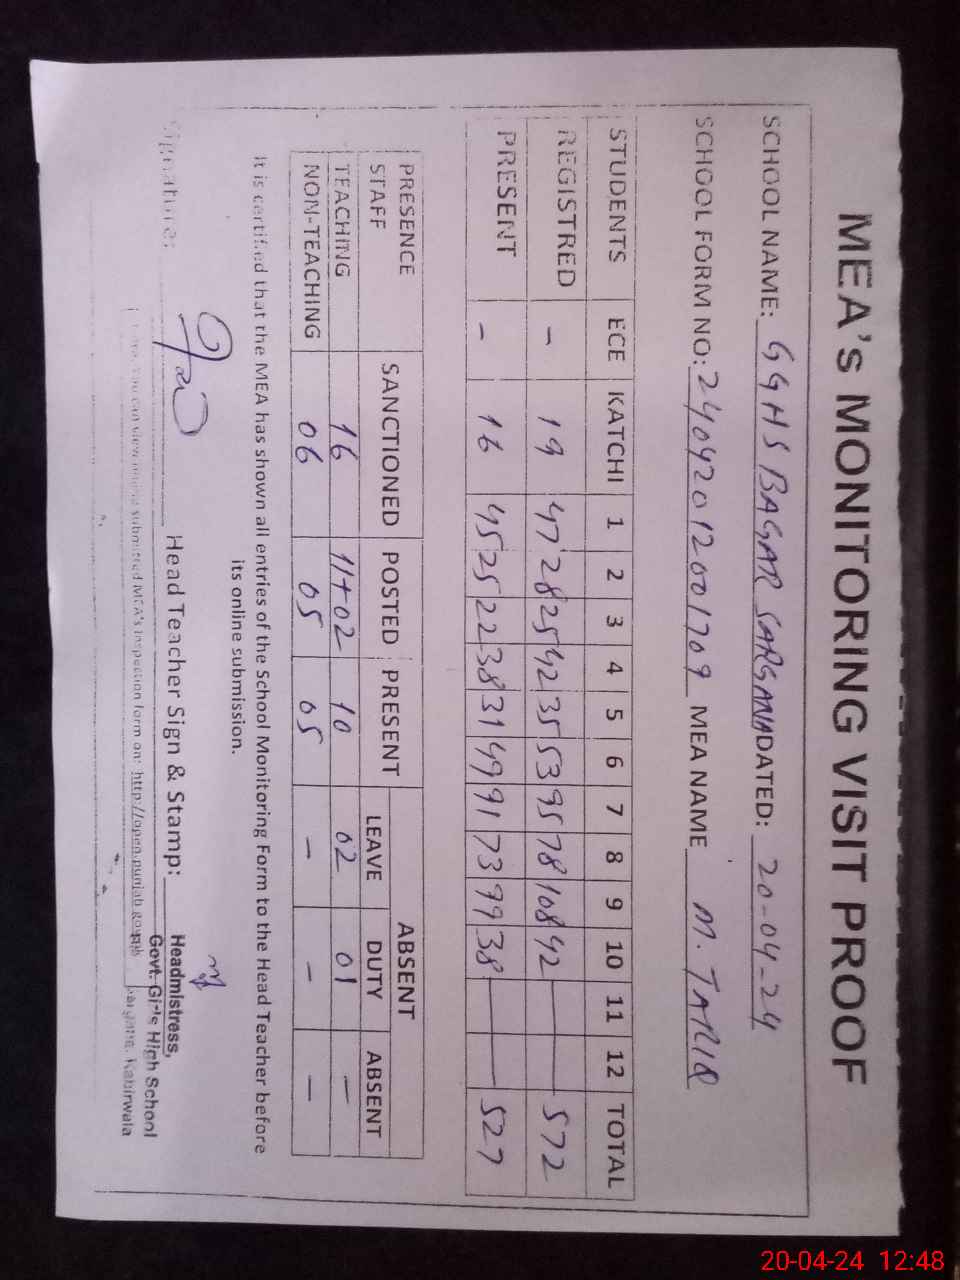 MEA's MONITORING VISIT PROOF
SCHOOL NAME: GGHS BAGAR SARGANA DATED: 20-04-24
SCHOOL FORM NO: 24092012001709 MEA NAME M. TARIQ
STUDENTS ECE KATCHI 1 2 3 4 5 6 7 8 9 10 11 12 TOTAL
REGISTRED - 19 47 28 25 42 35 53 95 78 108 42 — — 572
PRESENT - 16 45 25 22 38 31 49 91 73 99 38 — — 527
PRESENCE STAFF SANCTIONED POSTED PRESENT ABSENT
LEAVE DUTY ABSENT
TEACHING 16 11+02 10 02 01 —
NON-TEACHING 06 05 05 - - —
It is certified that the MEA has shown all entries of the School Monitoring Form to the Head Teacher before
its online submission.
Signature: Head Teacher Sign & Stamp:
Headmistress,
Govt. Girls High School
Sargana, Kabirwala
You can view online submitted MEA's inspection form on: http://open.punjab.gov.pk
20-04-24 12:48